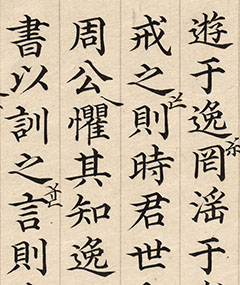 遊于逸罔滛于
戒之則時君世
周公懼其知逸
書以訓之言則